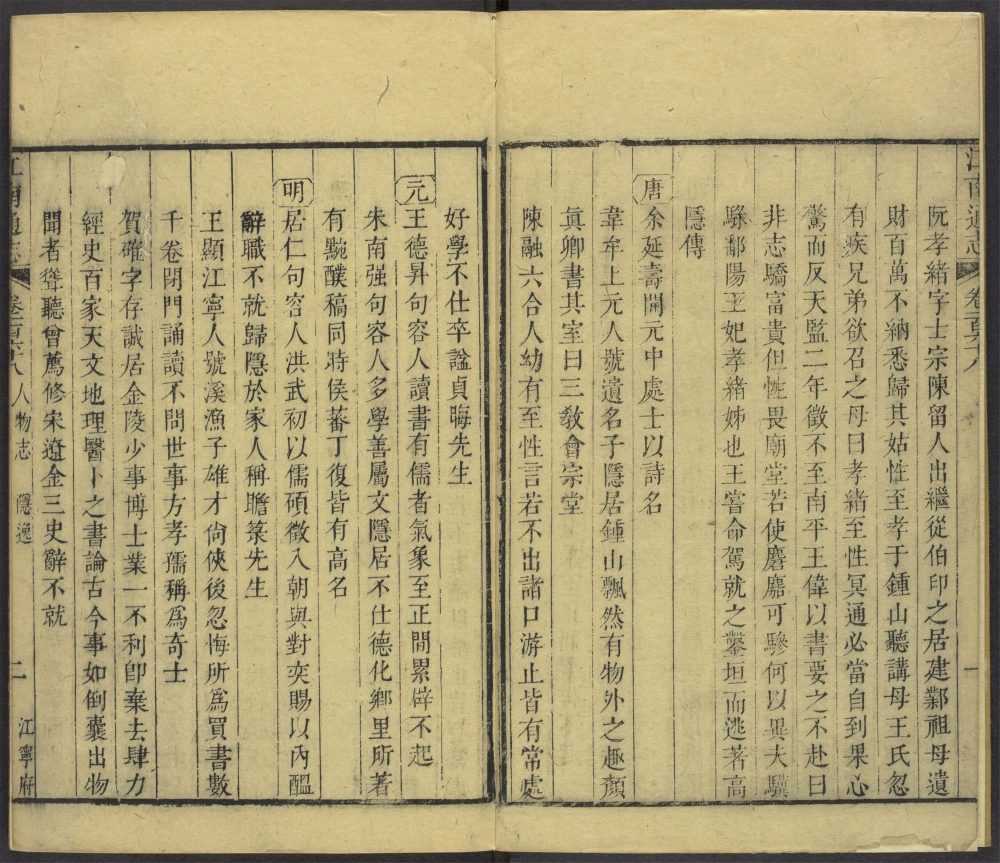 江南通志 卷一百六十八 一
阮孝緒字士宗陳留人出繼從伯印之居建鄴祖母遺
財百萬不納悉歸其姑性至孝于鍾山聽講母王氏忽
有疾兄弟欲召之母曰孝緒至性冥通必當自到果心
驚而反天監二年徵不至南平王偉以書要之不赴曰
非志驕富貴但性畏廟堂若使麏麚可驂何以異夫驥
騄鄱陽王妃孝緒姊也王嘗命駕就之鑿垣而逃著高
隱傳
唐余延壽開元中處士以詩名
韋牟上元人號遺名子隱居鍾山飄然有物外之趣顏
眞卿書其室曰三教會宗堂
陳融六合人幼有至性言若不出諸口游止皆有常處
好學不仕卒諡貞晦先生
元王德昇句容人讀書有儒者氣象至正間累辟不起
朱南强句容人多學善屬文隱居不仕德化鄉里所著
有黤醭稿同時侯蕃丁復皆有高名
明居仁句容人洪武初以儒碩徵入朝與對奕賜以內醞
辭職不就歸隱於家人稱瞻菉先生
王顯江寧人號溪漁子雄才尙俠後忽悔所爲買書數
千卷閉門誦讀不問世事方孝孺稱爲奇士
賀確字存誠居金陵少事博士業一不利卽棄去肆力
經史百家天文地理醫卜之書論古今事如倒囊出物
聞者聳聽曾薦修宋遼金三史辭不就
江南通志 卷一百六十八 人物志 隱逸 二 江寧府